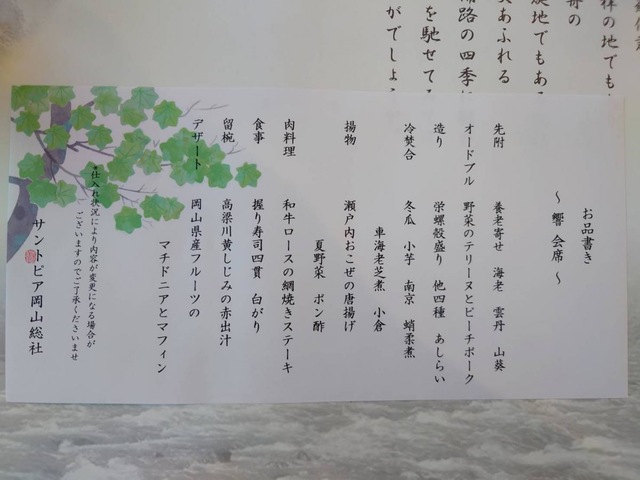 祥の地でも
旋地でもある
あふれる
路の四季に
を馳せてる
がでしょ
お品書き
～ 響 会席 ～
先附 養老寄せ 海老 雲丹 山葵
オードブル 野菜のテリーヌとピーチポーク
造り 栄螺殻盛り 他四種 あしらい
冷焚合 冬瓜 小芋 南京 蛸柔煮
車海老芝煮 小倉
揚物 瀬戸内おこぜの唐揚げ
夏野菜 ポン酢
肉料理 和牛ロースの網焼きステーキ
食事 握り寿司四貫 白がり
留椀 高梁川黄しじみの赤出汁
デザート 岡山県産フルーツの
マチドニアとマフィン
*仕入れ状況により内容が変更になる場合が
ございますのでご了承くださいませ
サントピア岡山総社